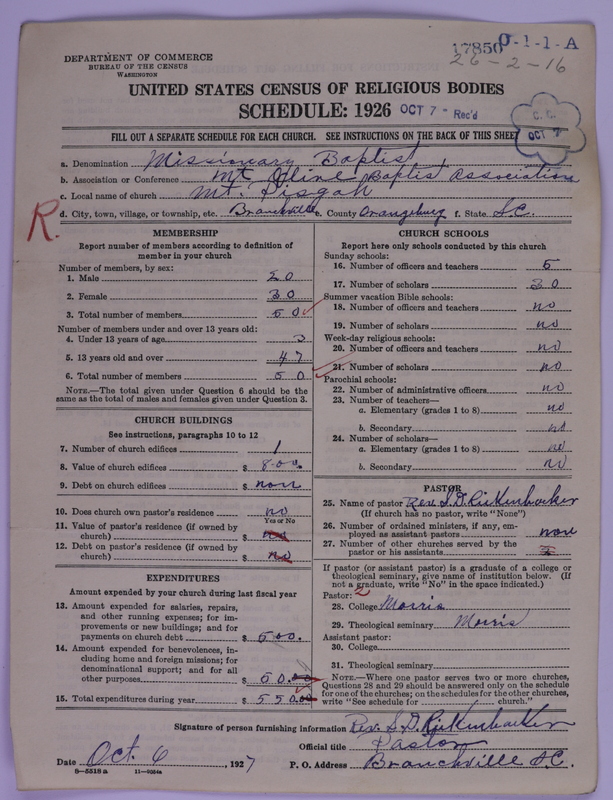 DEPARTMENT OF COMMERCE
BUREAU OF THE CENSUS
WASHINGTON
17850 0-1-1-A
26-2-16
UNITED STATES CENSUS OF RELIGIOUS BODIES
SCHEDULE: 1926 OCT 7 - Rec'd
C. C.
OCT 7
FILL OUT A SEPARATE SCHEDULE FOR EACH CHURCH. SEE INSTRUCTIONS ON THE BACK OF THIS SHEET
a. Denomination Missionary Baptist
b. Association or Conference Mt Oline Baptist Association
c. Local name of church Mt. Pisgah
R.
d. City, town, village, or township, etc. Branchville e. County Orangeburg f. State S.C.
MEMBERSHIP
Report number of members according to definition of member in your church
Number of members, by sex:
1. Male 20
2. Female 30
3. Total number of members 50
Number of members under and over 13 years old:
4. Under 13 years of age 3
5. 13 years old and over 47
6. Total number of members 50
NOTE.—The total given under Question 6 should be the same as the total of males and females given under Question 3.
CHURCH BUILDINGS
See instructions, paragraphs 10 to 12
7. Number of church edifices 1
8. Value of church edifices $ 800.
9. Debt on church edifices $ non
10. Does church own pastor's residence no
Yes or No
11. Value of pastor's residence (if owned by church) $ no
12. Debt on pastor's residence (if owned by church) $ no
EXPENDITURES
Amount expended by your church during last fiscal year
13. Amount expended for salaries, repairs, and other running expenses; for improvements or new buildings; and for payments on church debt $ 500.
14. Amount expended for benevolences, including home and foreign missions; for denominational support; and for all other purposes $ 50.00
15. Total expenditures during year $ 550.00
CHURCH SCHOOLS
Report here only schools conducted by this church
Sunday schools:
16. Number of officers and teachers 5
17. Number of scholars 30
Summer vacation Bible schools:
18. Number of officers and teachers no
19. Number of scholars no
Week-day religious schools:
20. Number of officers and teachers no
21. Number of scholars no
Parochial schools:
22. Number of administrative officers no
23. Number of teachers—
a. Elementary (grades 1 to 8) no
b. Secondary no
24. Number of scholars—
a. Elementary (grades 1 to 8) no
b. Secondary no
PASTOR
25. Name of pastor Rev. S. D. Rickenbacker
(If church has no pastor, write "None")
26. Number of ordained ministers, if any, employed as assistant pastors none
27. Number of other churches served by the pastor or his assistants
2
If pastor (or assistant pastor) is a graduate of a college or theological seminary, give name of institution below. (If not a graduate, write "No" in the space indicated.)
Pastor:
28. College Morris
29. Theological seminary Morris
Assistant pastor:
30. College
31. Theological seminary
NOTE.—Where one pastor serves two or more churches, Questions 28 and 29 should be answered only on the schedule for one of the churches; on the schedules for the other churches, write "See schedule for church."
Signature of person furnishing information Rev. S. D. Rickenbacker
Official title Pastor
Date Oct. 6, 1927 P. O. Address Branchville S.C.
8-5518a 11-9084a